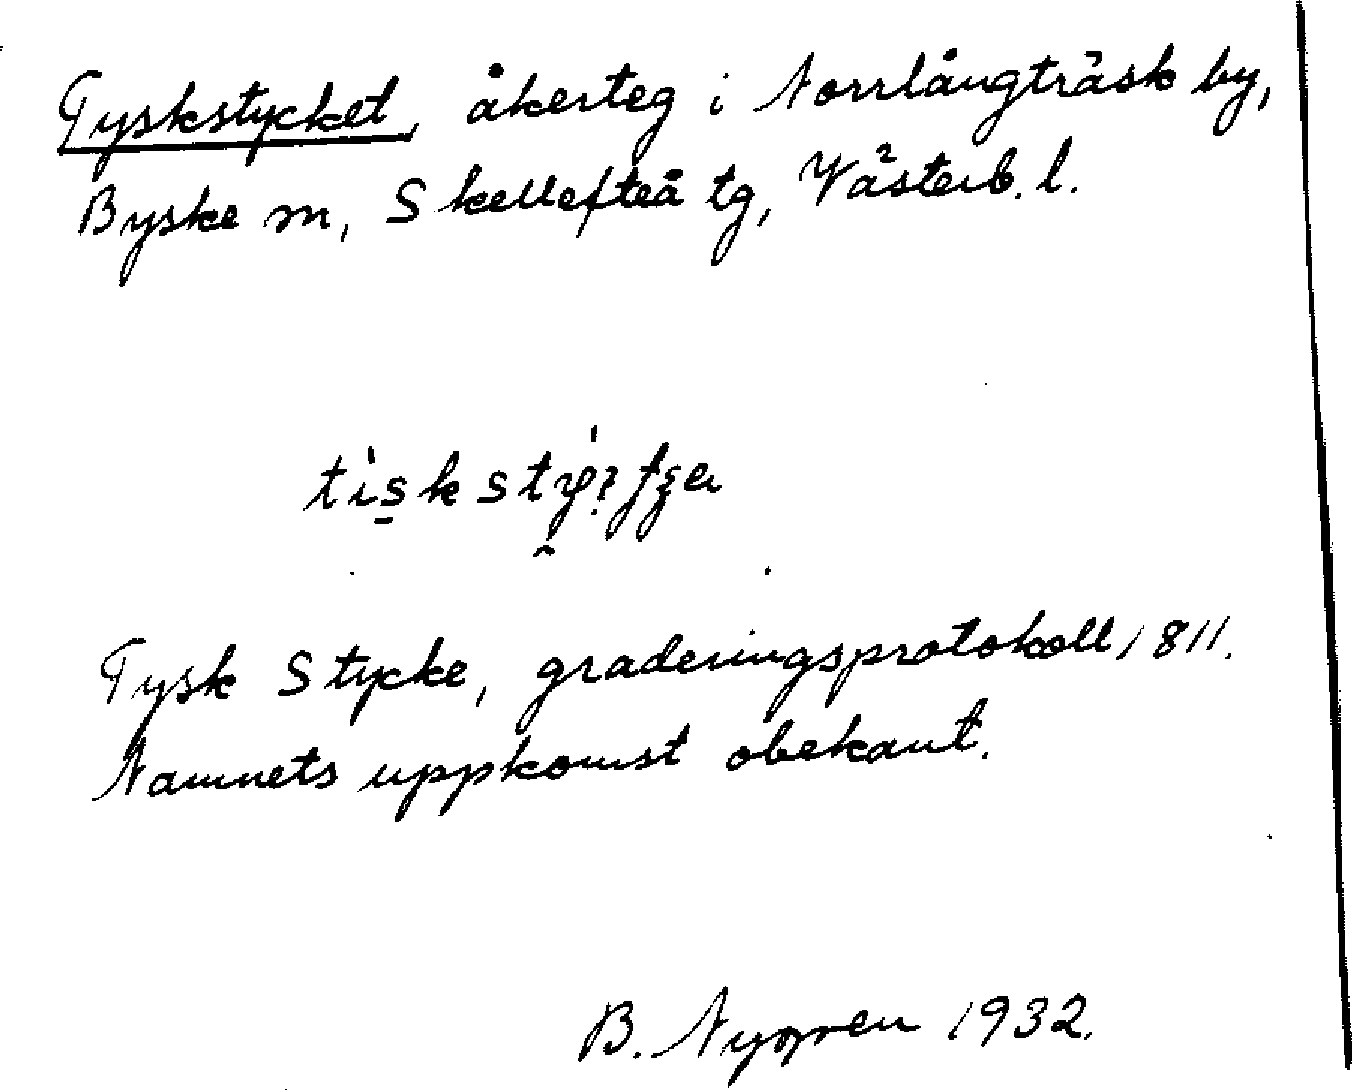 Tyskstycket, åkerteg i Norrlångträsk by,
Byske sn, Skellefteå tg, Västerb. l.
Tysk Stycke, graderingsprotokoll 1811.
Namnets uppkomst obekant.
B. Nygren 1932.